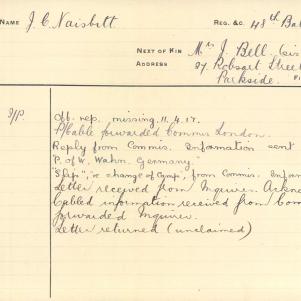 NAME J. C. Naisbitt REG. &C. 48th Bat
NEXT OF KIN Mrs J. Bell (sis
ADDRESS 27 Robsart Street
Parkside.
Off. rep. missing. 11.4.17.
P/Cable forwarded Commis. London.
Reply from Commis. Information sent
"P. of W. Wahn. Germany."
"Slip", re change of Camp, from Commis. Inform
Letter received from Inquirer. Ackno
Cabled information received from Com
forwarded Inquirer.
Letter returned (unclaimed)